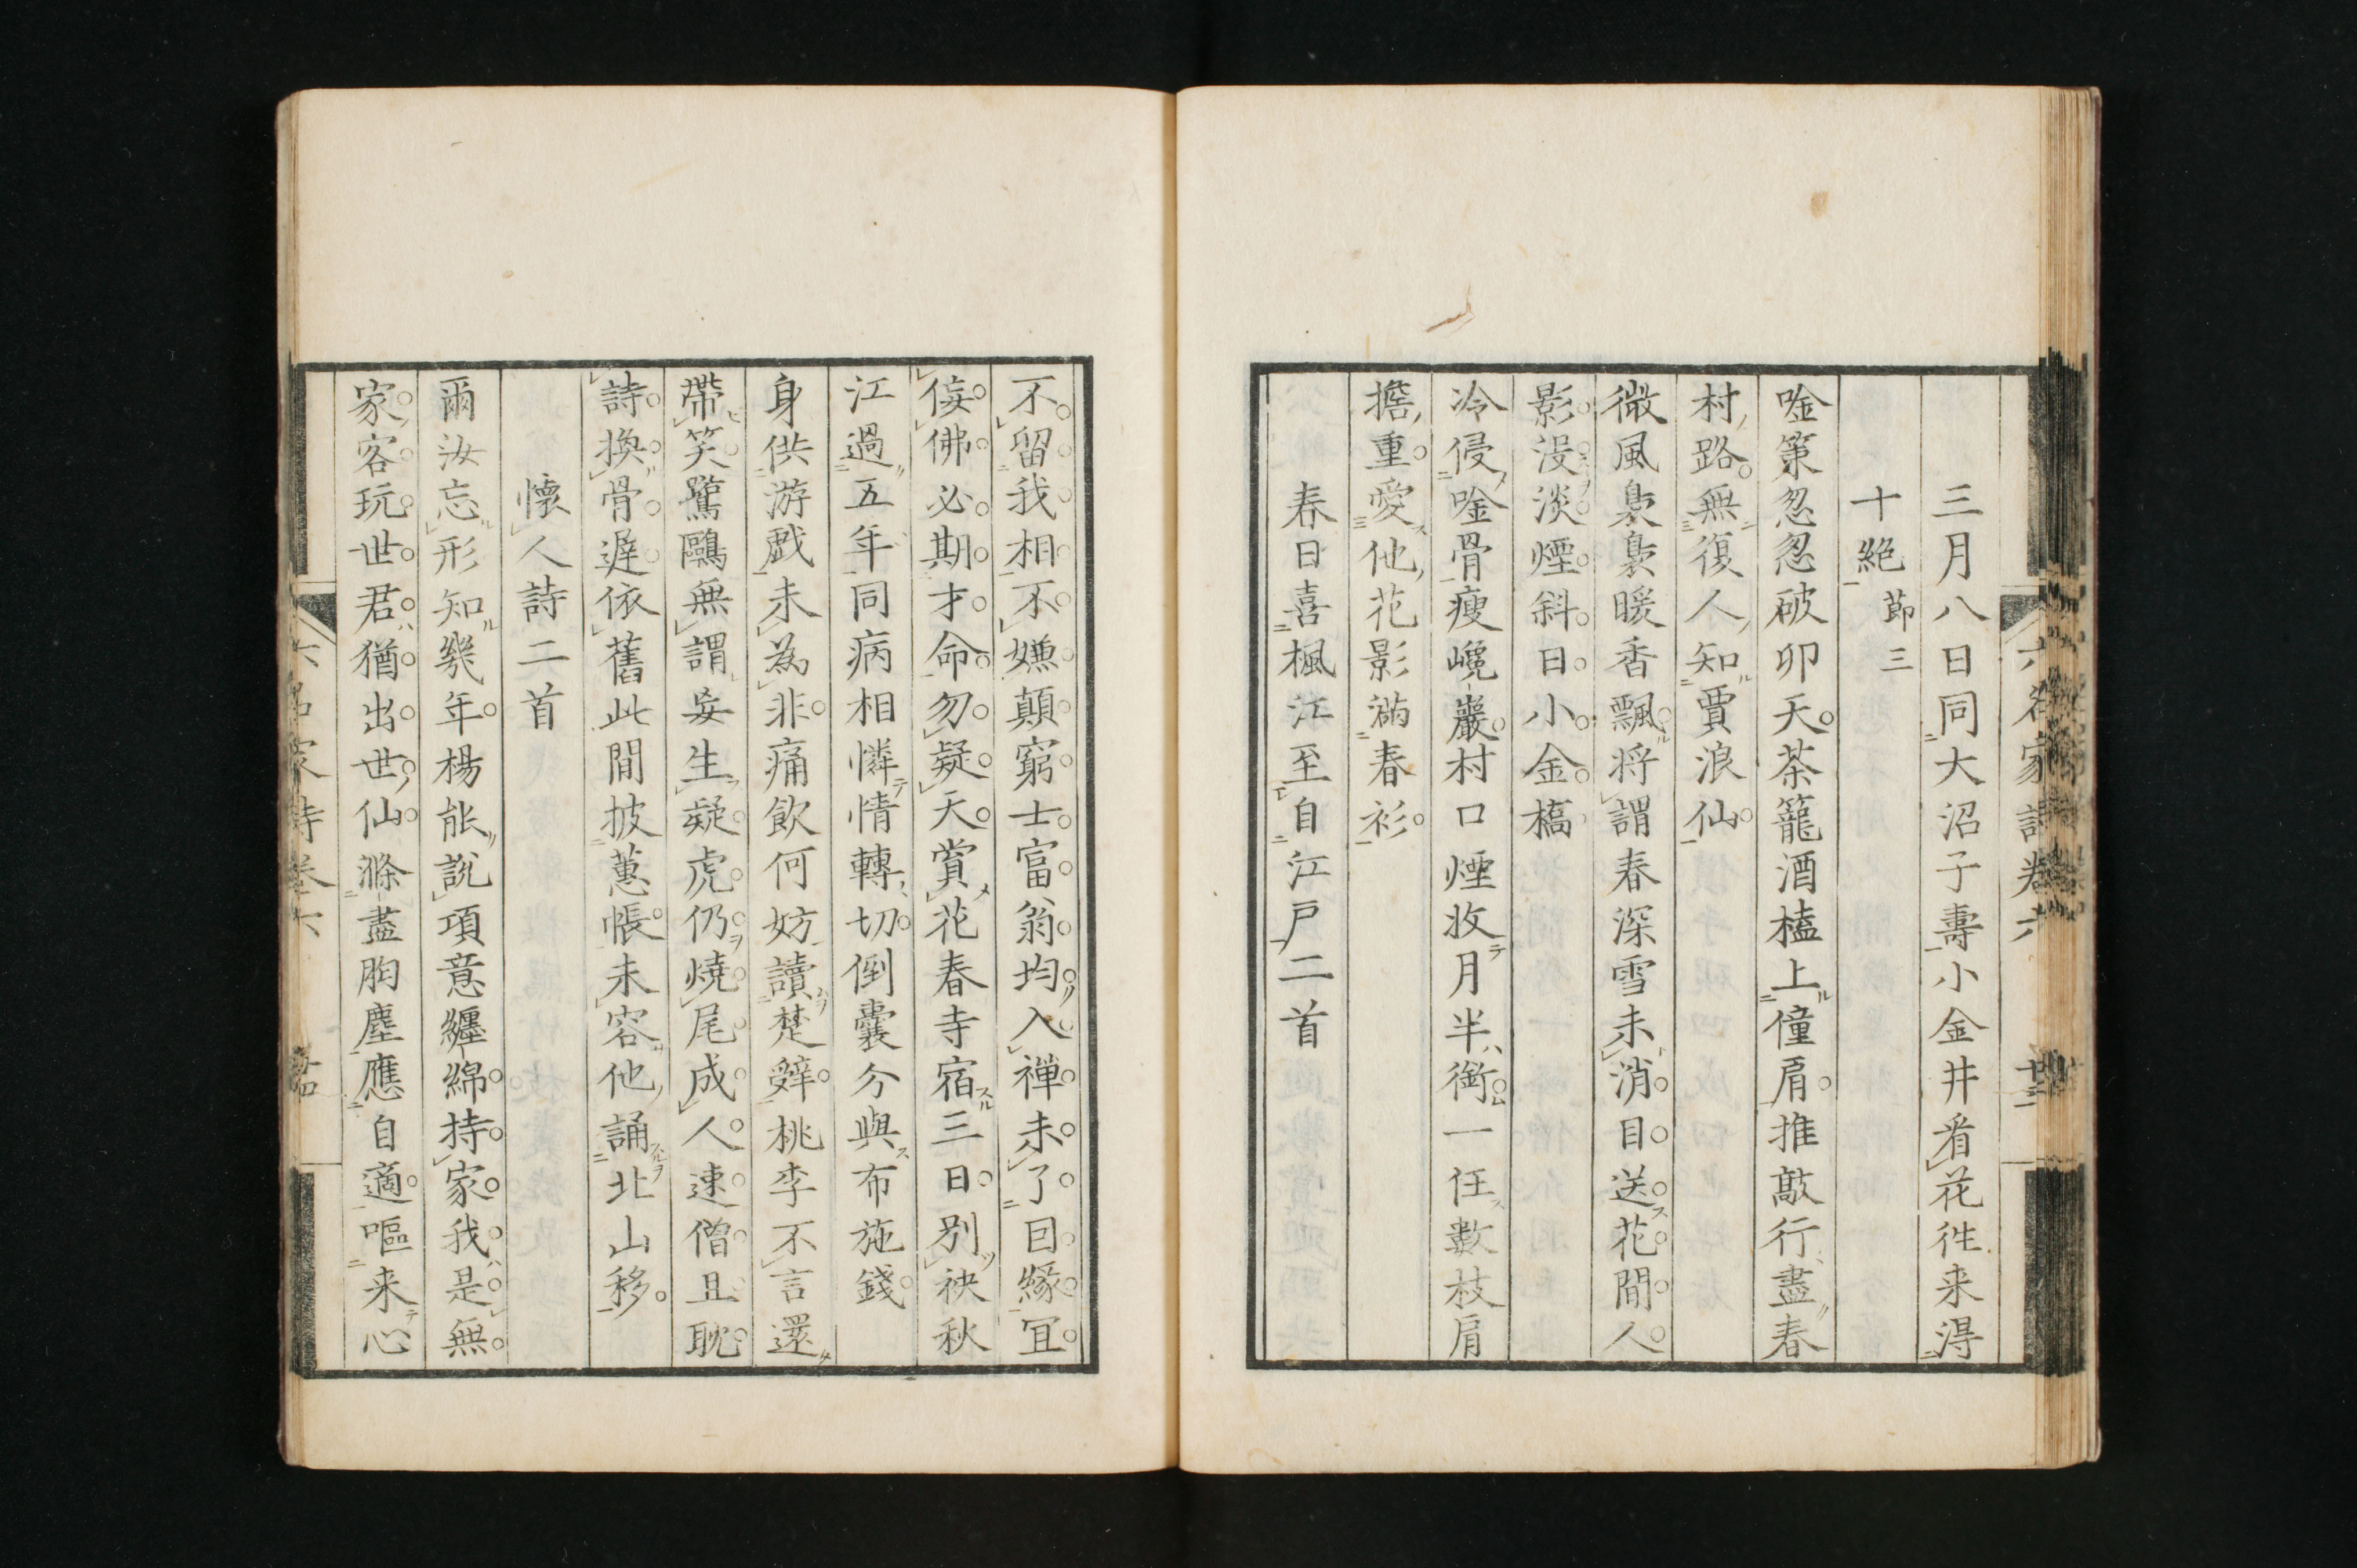 三月八日同大沼子壽小金井看花徃来得
十絶 節三
唫策忽忽破卯天茶籠酒榼上僮肩推敲行盡春
村路無復人知賈浪仙
微風裊裊暖香飄將謂春深雪未消目送花間人
影没淡煙斜日小金橋
冷侵唫骨瘦巉巖村口煙收月半銜一任數枝肩
擔重愛他花影滿春衫
春日喜楓江至自江戸二首
不留我相不嫌顛窮士富翁均入禪未了因緣宜
侫佛必期才命勿疑天賞花春寺宿三日別袂秋
江過五年同病相憐情轉切倒囊分與布施錢
身供游戯未為非痛飲何妨讀楚辭桃李不言還
帶笑鷺鷗無謂妄生疑虎仍燒尾成人速僧且耽
詩換骨遲依舊此間披蕙帳未容他誦北山移
懷人詩二首
爾汝忘形知幾年楊能説項意纏綿持家我是無
家客玩世君猶出世仙滌盡胸塵應自適嘔来心
六名家詩卷六